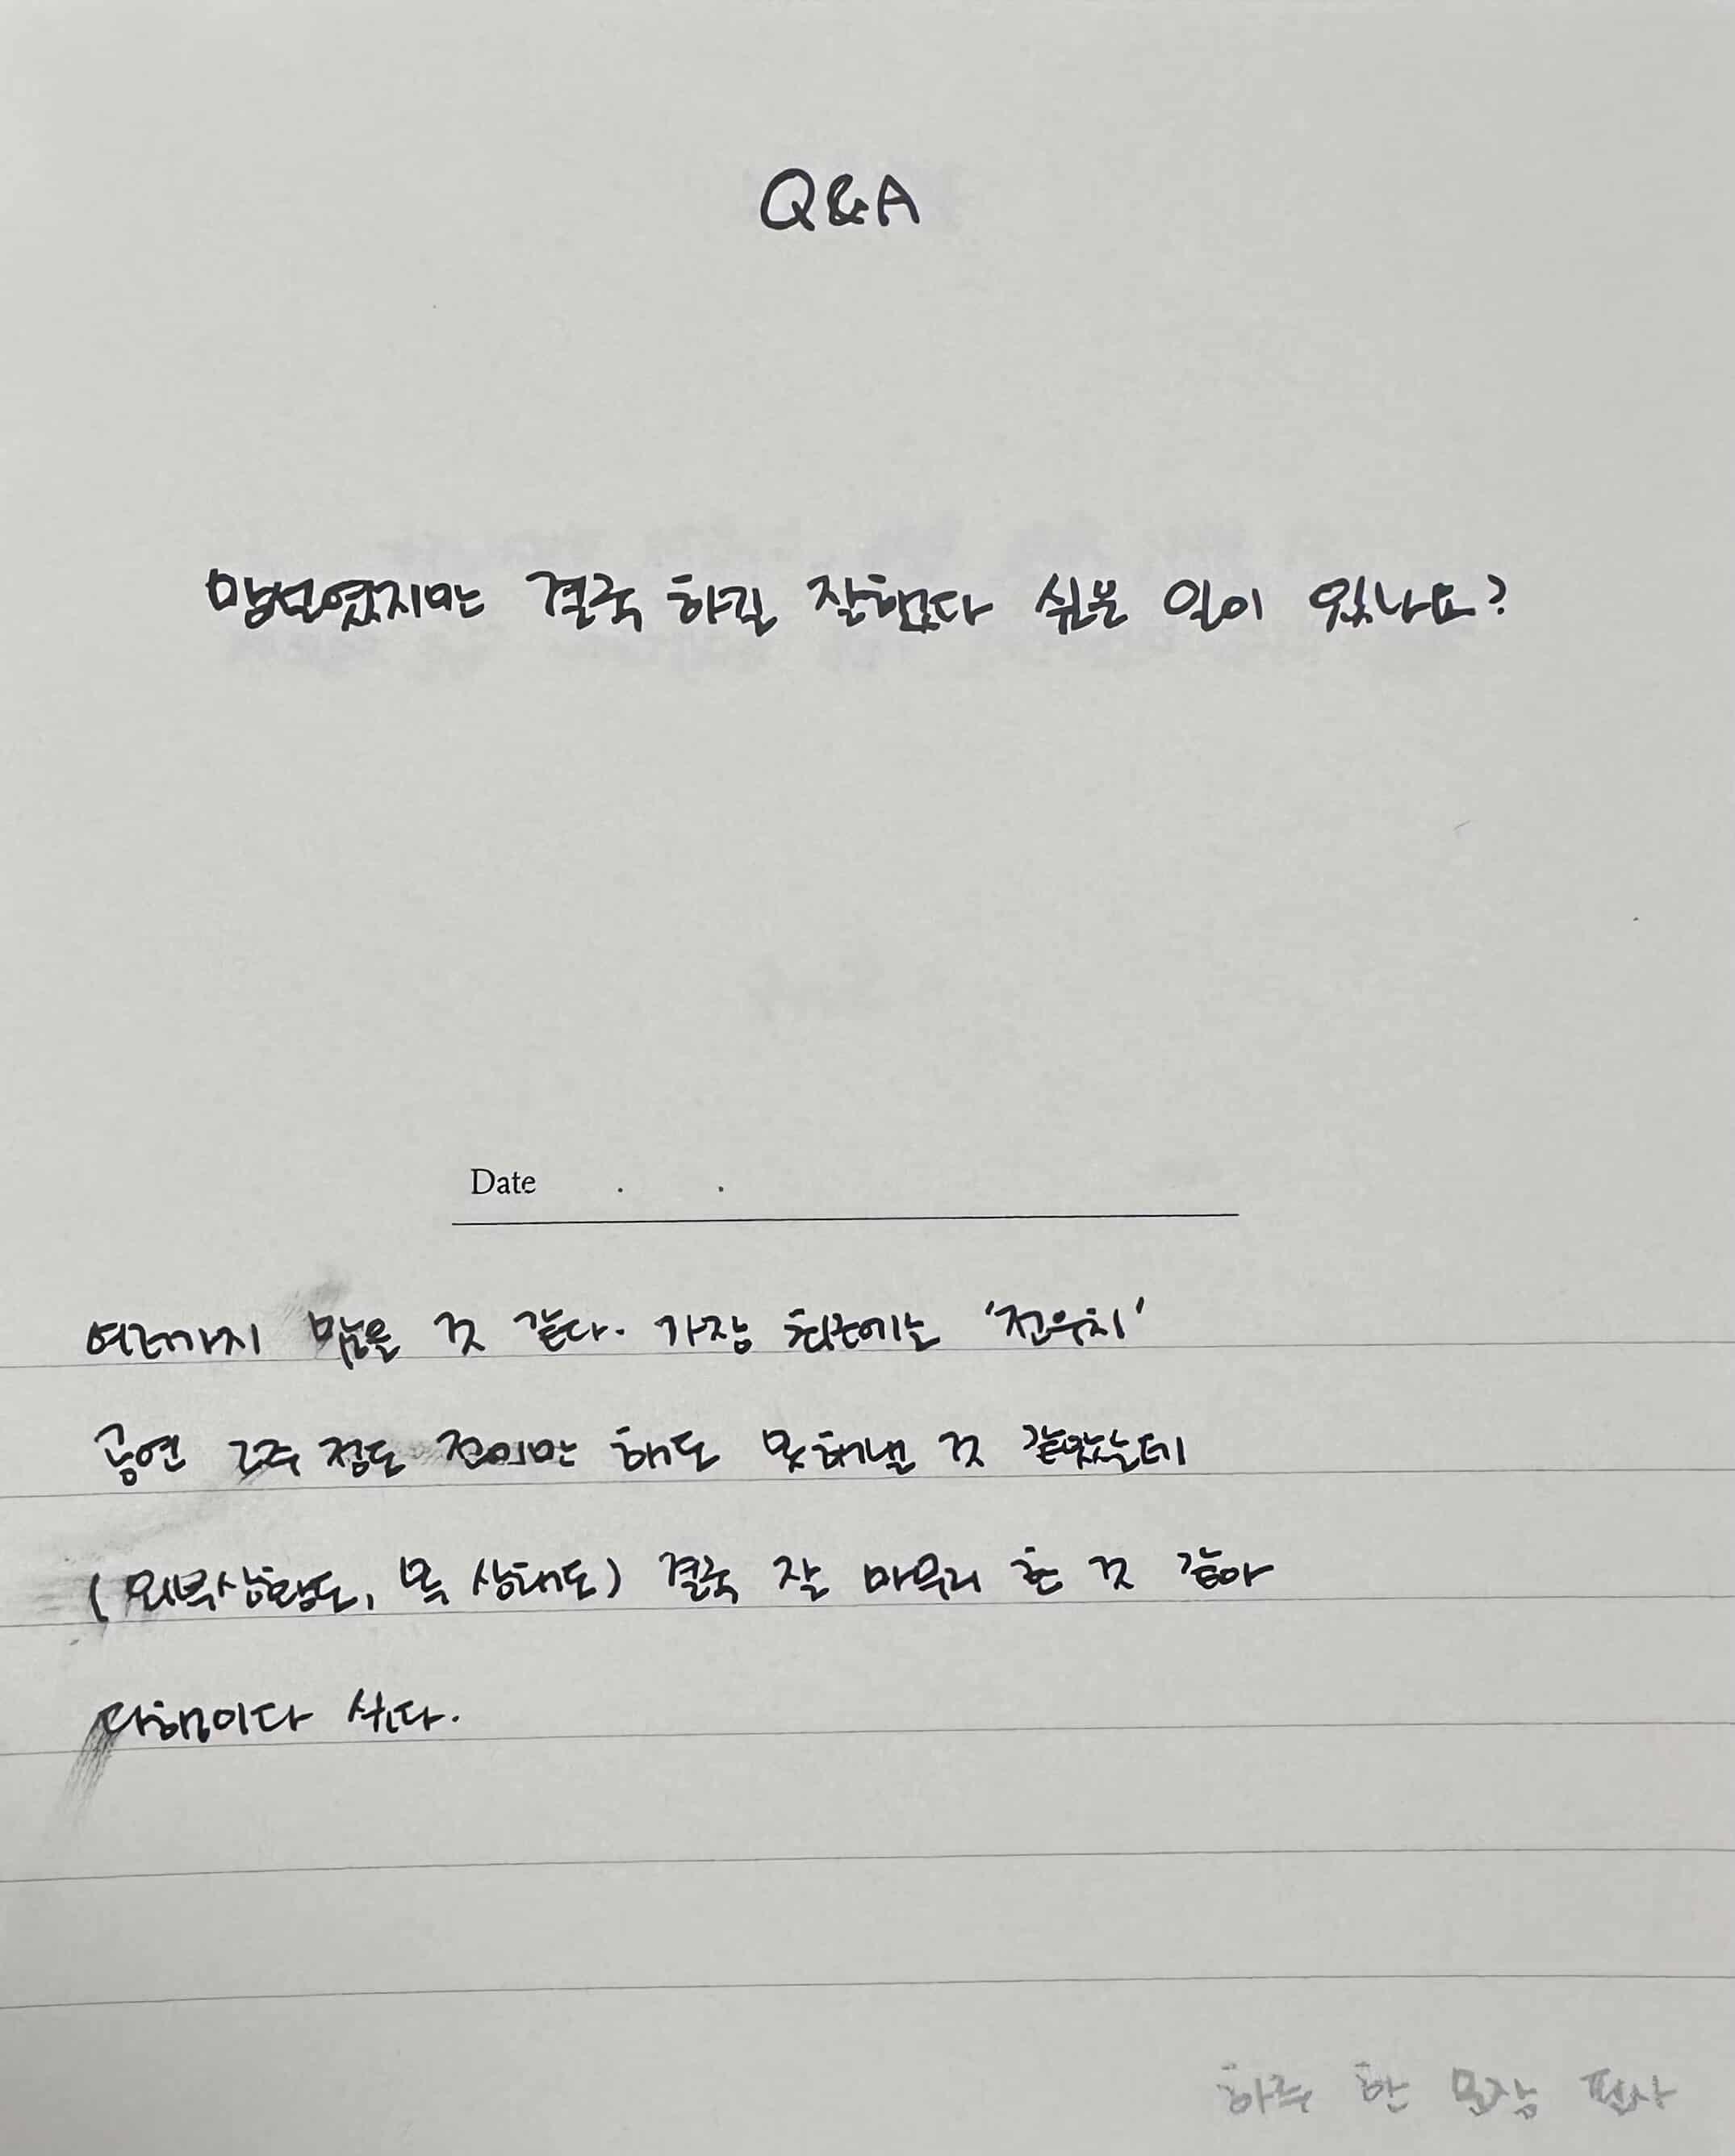 Q&A
망설였지만 결국 하길 잘했다 싶은 일이 있나요?
Date . .
여러가지 많을 것 같다. 가장 최근에는 '전우치'
공연 2주 정도 전이만 해도 못해낼 것 같았는데
(외부상황도, 목 상태도) 결국 잘 마무리 한 것 같아
다행이다 싶다.
하루 한 문장 필사